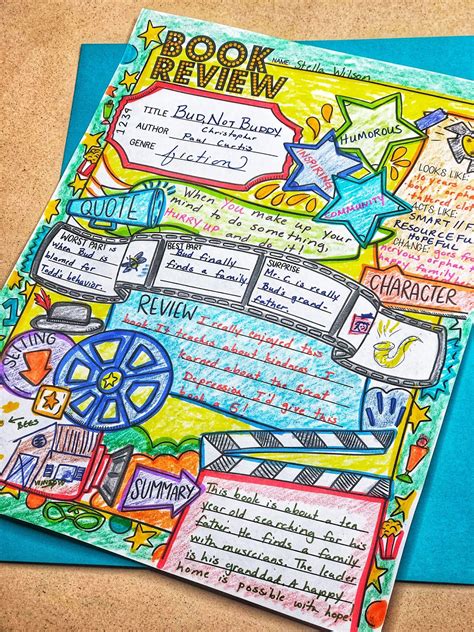 BOOK
REVIEW
NAME: Stella Wilson
1234
TITLE BUD, NOT BUDDY
AUTHOR Christopher
Paul Curtis
GENRE fiction
HUMOROUS
INSPIRING
COMMUNITY
LOOKS LIKE:
boy
ACTS LIKE:
SMART // F
RESOURCEFUL
HOPEFUL
CHANGE: goes from
nervous orphan
happy family,
CHARACTER
QUOTE
When you make up your
mind to do something,
HURRY UP and do it!
WORST PART is
when Bud is
blamed for
Todd's behavior.
BEST PART
Bud finally
finds a family.
SURPRISE
Mr. C is really
Bud's grand-
father.
REVIEW
I really enjoyed this
book. It teaches about kindness. I
learned about the Great
Depression. I'd give this
book 5!
SETTING
BEES
WINDOW
SUMMARY
This book is about a ten
year old searching for his
father. He finds a family
with musicians. The leader
is his granddad. A happy
home is possible with hope!